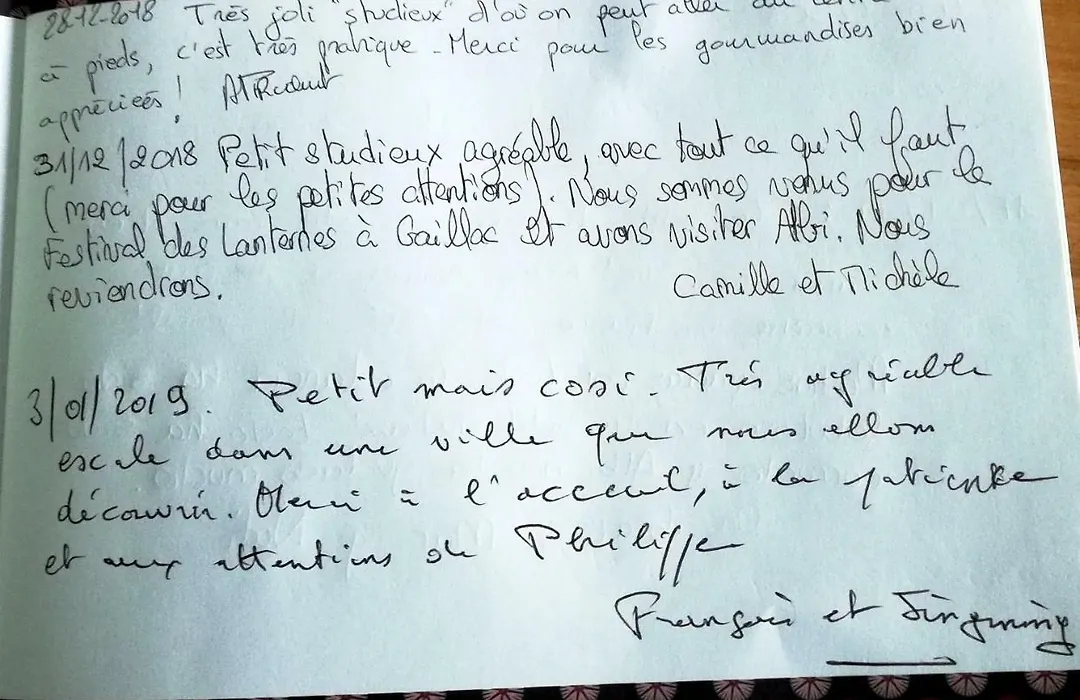 28-12-2018 Très joli "studieux" d'où on peut aller au
à pieds, c'est très pratique - Merci pour les gourmandises bien
appréciées !
31/12/2018 Petit studieux agréable, avec tout ce qu'il faut
(merci pour les petites attentions). Nous sommes venus pour le
Festival des Lanternes à Gaillac et avons visiter Albi. Nous
reviendrons. Camille et Michèle
3/01/2019. Petit mais cosi. Très agréable
escale dans une ville que nous allons
découvrir. Merci à l'accueil, à la patience
et aux attentions de Philippe
François et Jingming